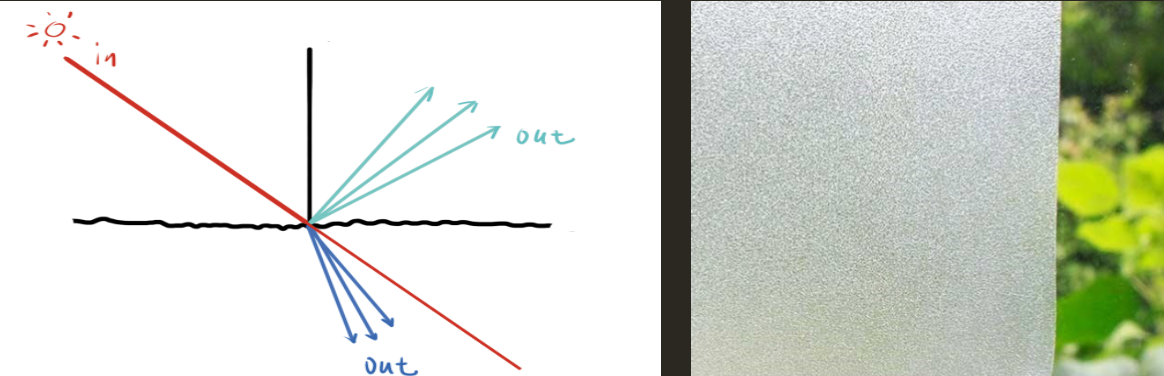 in
out
out